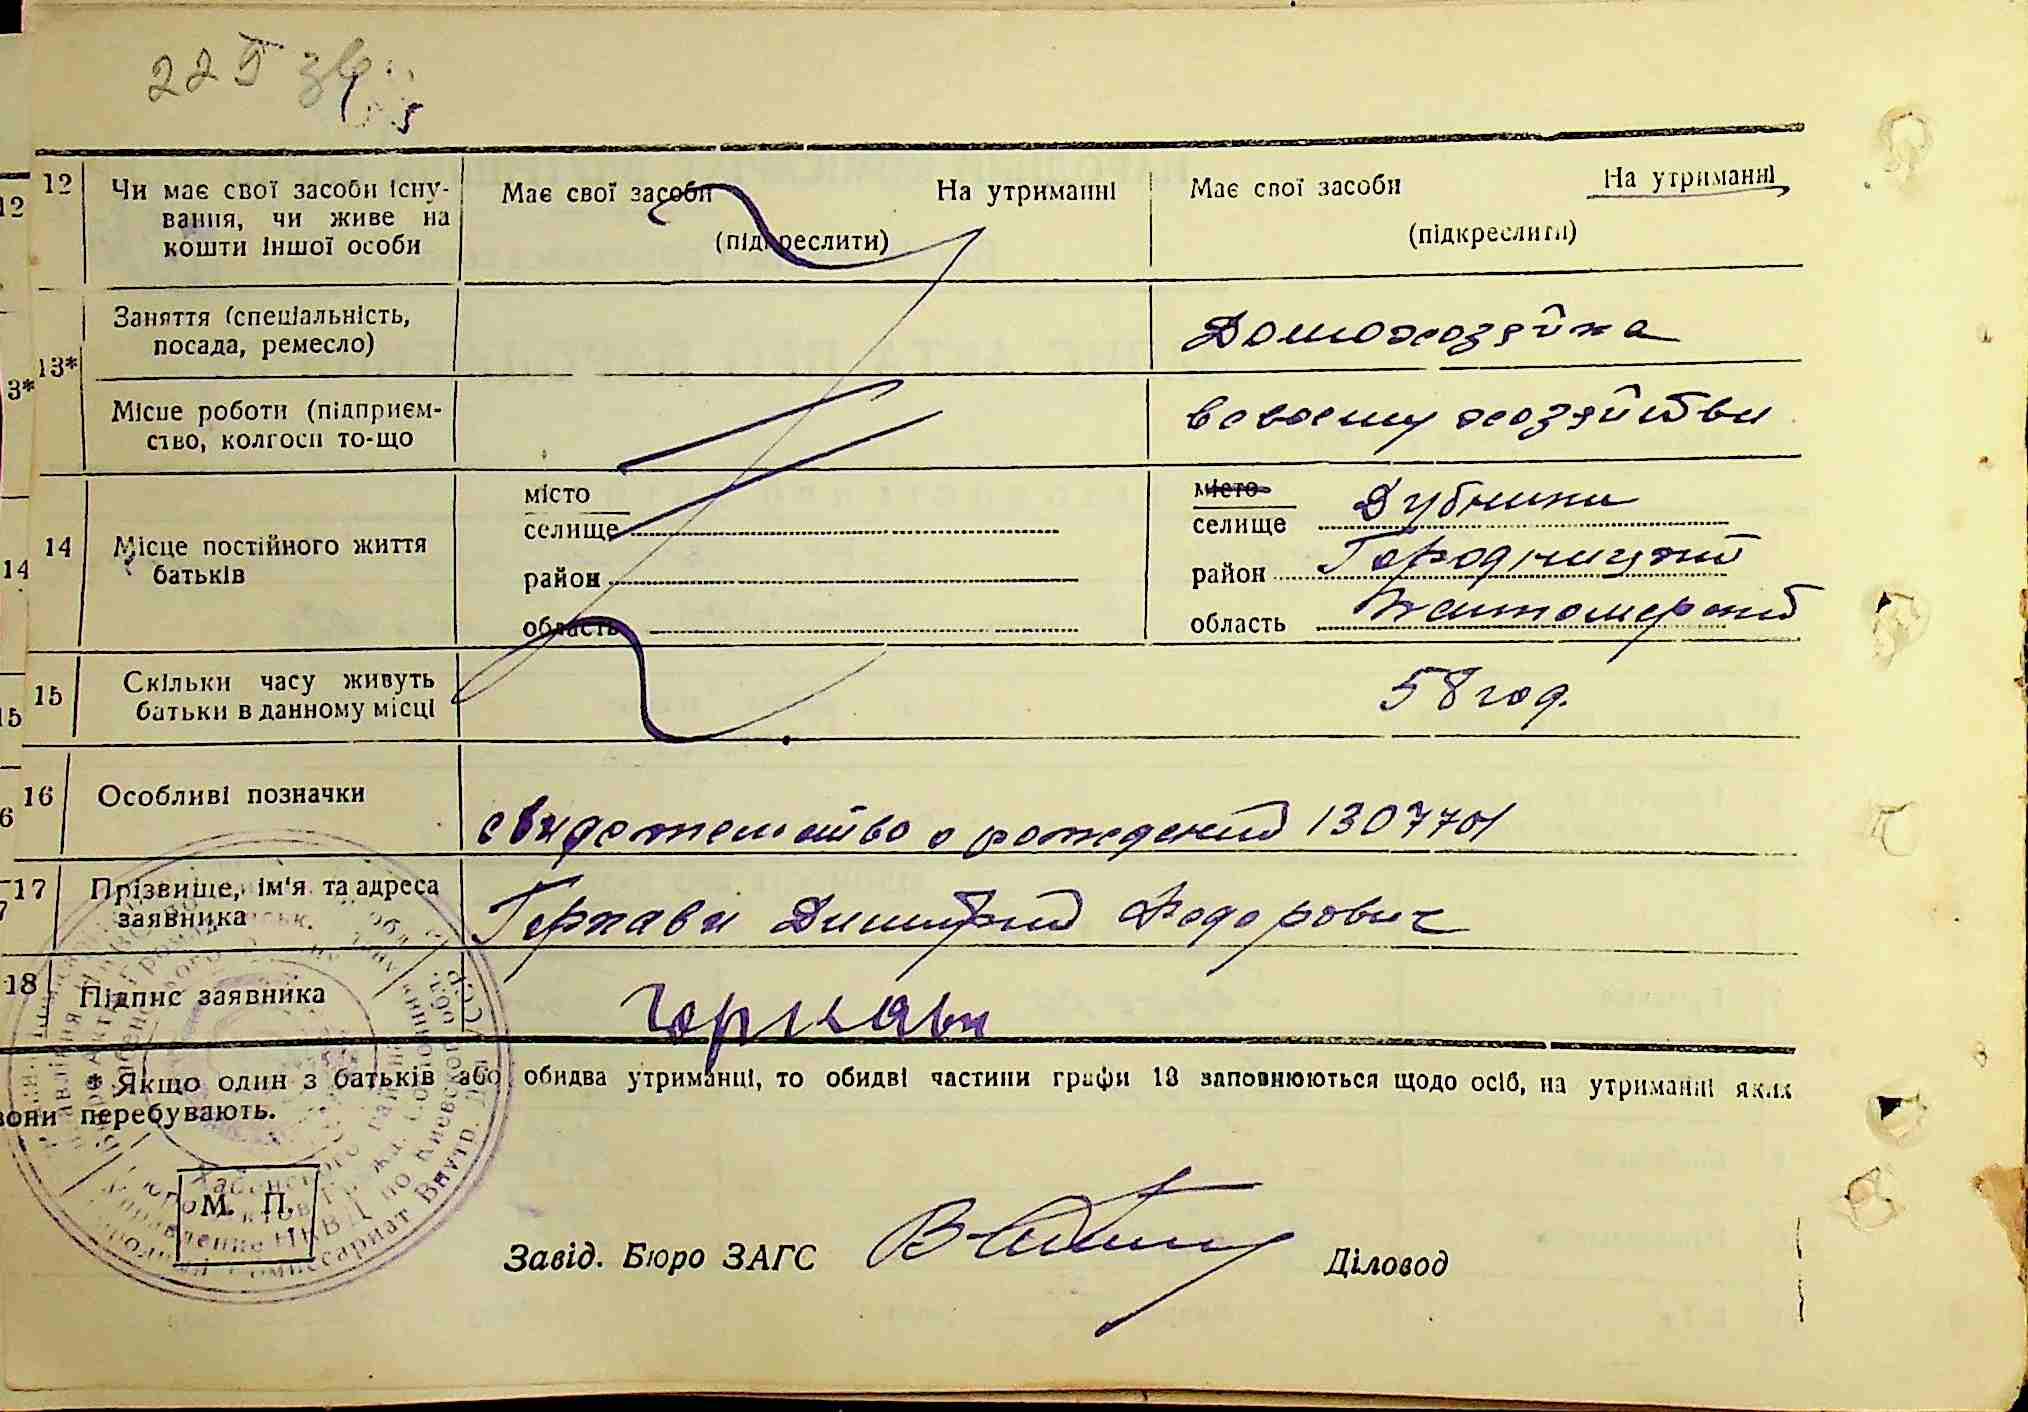 225 зв
12 Чи має свої засоби існу-
вання, чи живе на
кошти іншої особи
Має свої засоби На утриманні
(підкреслити)
Має свої засоби На утриманні
(підкреслити)
13* Заняття (спеціальність,
посада, ремесло)
Домохозяйка
Місце роботи (підприєм-
ство, колгосп то-що
в своему хозяйстви
14 Місце постійного життя
батьків
місто
селище
район
область
місто
селище Дубники
район Городницкий
область Житомерский
15 Скільки часу живуть
батьки в данному місці
58 год.
16 Особливі позначки
свидетельство о рождений 1307701
17 Прізвище, ім'я та адреса
заявника
Димитрий Федорович
18 Підпис заявника
* Якщо один з батьків або обидва утриманці, то обидві частини графи 13 заповнюються щодо осіб, на утриманні яких
вони перебувають.
М. П.
Завід. Бюро ЗАГС Діловод
12
3*
14
15
6
7